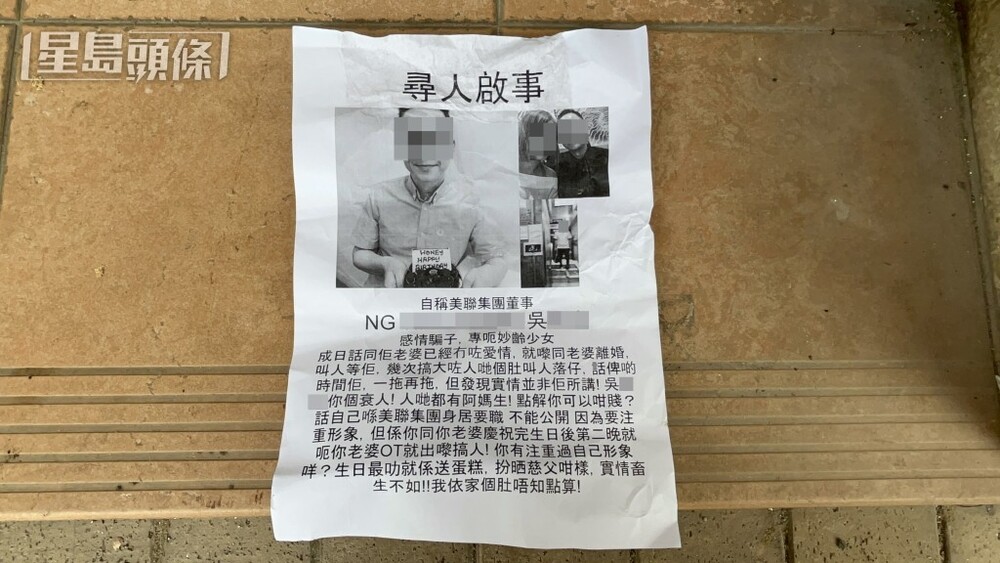 星島頭條
尋人啟事
HONEY
HAPPY
BIRTHDAY
自稱美聯集團董事
NG 吳
感情騙子, 專呃妙齡少女
成日話同佢老婆已經冇咗愛情, 就嚟同老婆離婚,
叫人等佢, 幾次搞大咗人哋個肚叫人落仔, 話俾啲
時間佢, 一拖再拖, 但發現實情並非佢所講! 吳
你個衰人! 人哋都有阿媽生! 點解你可以咁賤?
話自己喺美聯集團身居要職 不能公開 因為要注
重形象, 但係你同你老婆慶祝完生日後第二晚就
呃你老婆OT就出嚟搞人! 你有注重過自己形象
咩？生日最叻就係送蛋糕, 扮晒慈父咁樣, 實情畜
生不如!!我依家個肚唔知點算!